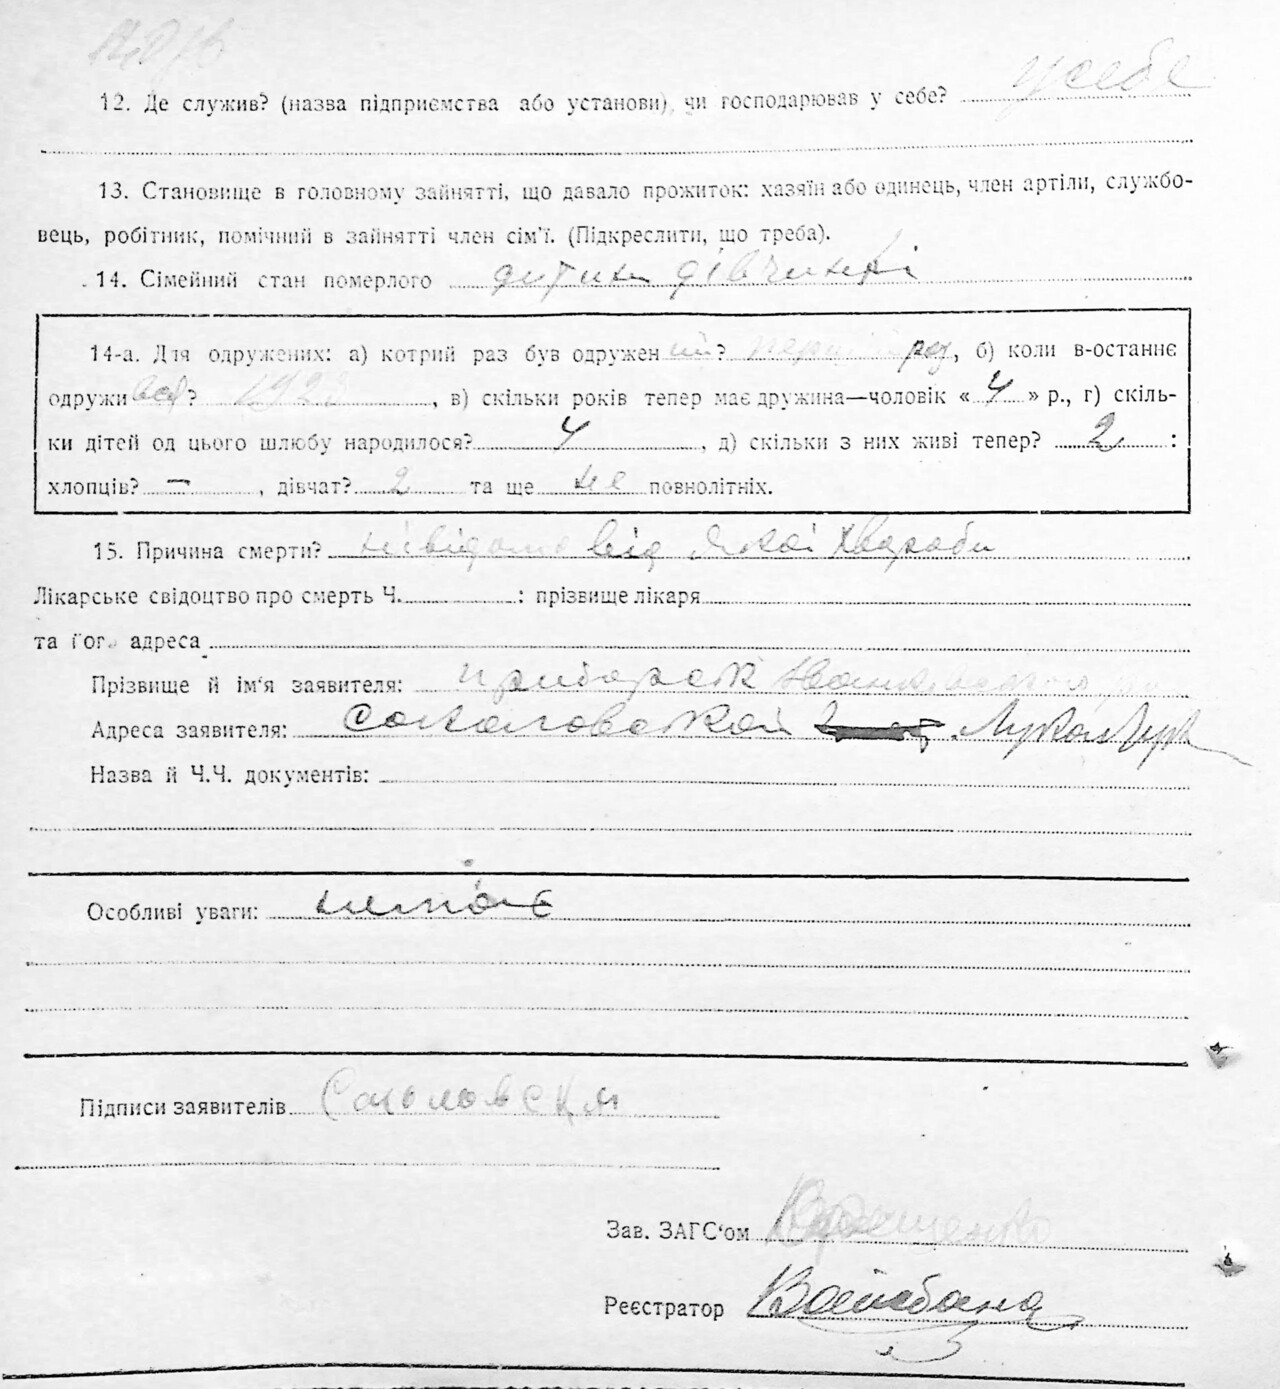 у себе
12. Де служив? (назва підприємства або установи), чи господарював у себе?
13. Становище в головному зайнятті, що давало прожиток: хазяїн або одинець, член артіли, службо-
вець, робітник, помічний в зайнятті член сім'ї. (Підкреслити, що треба).
14. Сімейний стан померлого дитина
14-а. Для одружених: а) котрий раз був одружений? перший раз, б) коли в-останнє
одруживсь? 1923, в) скільки років тепер має дружина—чоловік « 4 » р., г) скіль-
ки дітей од цього шлюбу народилося? 4, д) скільки з них живі тепер? 2 :
хлопців? —, дівчат? 2 та ще не повнолітніх.
15. Причина смерти? невідомо від якої хвороби
Лікарське свідоцтво про смерть Ч. : прізвище лікаря
та його адреса
Прізвище й ім'я заявителя:
Адреса заявителя: Соколовской
Назва й Ч.Ч. документів:
Особливі уваги: немає
Підписи заявителів
Зав. ЗАГС'ом
Реєстратор